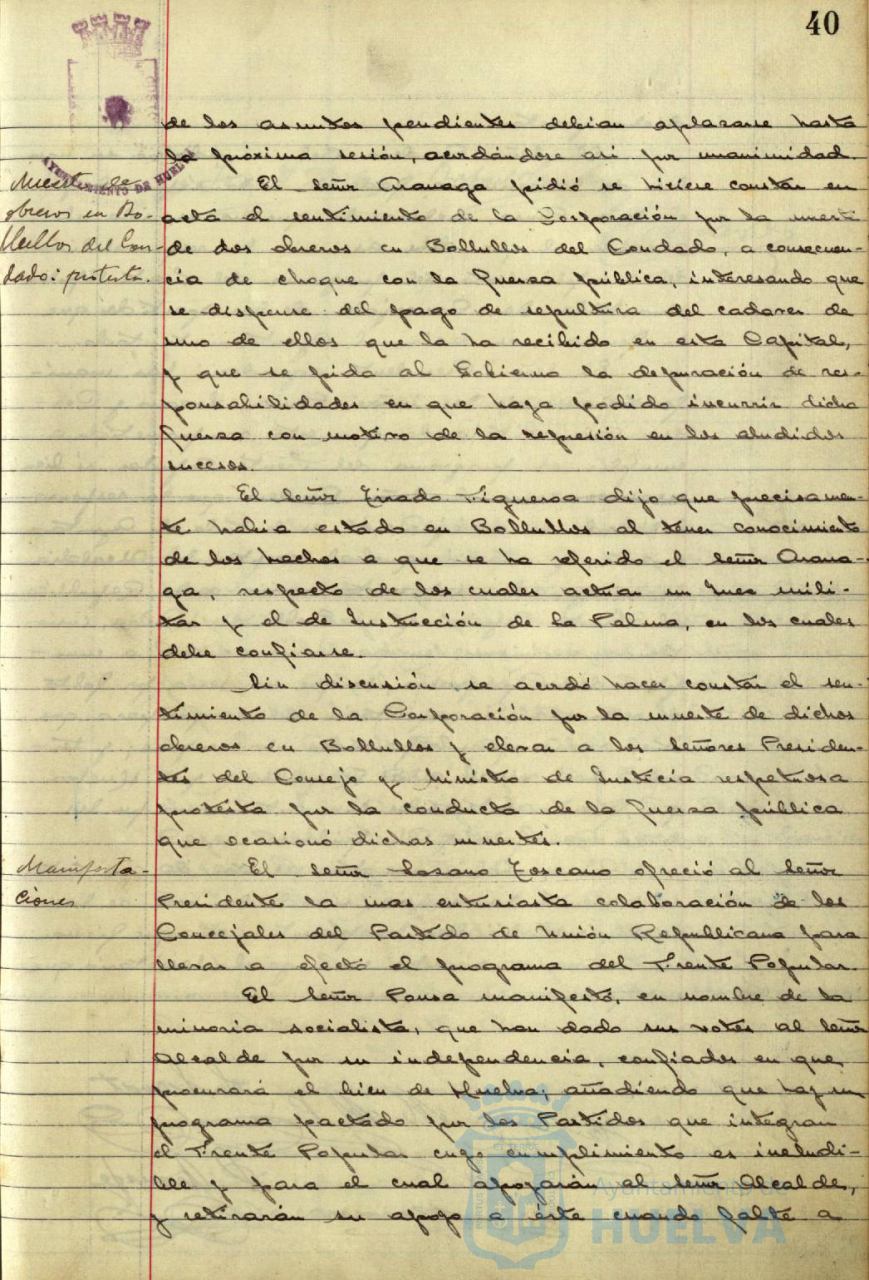 40
AYUNTAMIENTO DE HUELVA
de los asuntos pendientes debian aplazarse hasta
la próxima sesión, acordándose asi por unanimidad.
Muerte de
obreros en Bo-
llullos del Con-
dado: protesta.
El señor Aranaga pidió se hiciese constar en
acta el sentimiento de la Corporación por la muerte
de dos obreros en Bollullos del Condado, a consecuen-
cia de choque con la fuerza pública, interesando que
se dispense del pago de sepultura del cadaver de
uno de ellos que la ha recibido en esta Capital,
y que se pida al Gobierno la depuración de res-
ponsabilidades en que haya podido incurrir dicha
fuerza con motivo de la represión en los aludidos
sucesos.
El señor Tirado Figueroa dijo que precisamen-
te habia estado en Bollullos al tener conocimiento
de los hechos a que se ha referido el señor Arana-
ga, respecto de los cuales actúan un Juez mili-
tar y el de Instrucción de la Palma, en los cuales
debe confiarse.
Sin discusión se acordó hacer constar el sen-
timiento de la Corporación por la muerte de dichos
obreros en Bollullos y elevar a los señores Presiden-
tes del Consejo y Ministro de Justicia respetuosa
protesta por la conducta de la fuerza pública
que ocasionó dichas muertes.
Manifesta-
ciones
El señor Lozano Toscano ofreció al señor
Presidente la mas entusiasta colaboración de los
Concejales del Partido de Unión Republicana para
llevar a efecto el programa del Frente Popular.
El señor Ponsa manifestó, en nombre de la
minoria socialista, que han dado sus votos al señor
Alcalde por su independencia, confiados en que
procurará el bien de Huelva; añadiendo que hay un
programa pactado por los Partidos que integran
el Frente Popular cuyo cumplimiento es ineludi-
ble y para el cual apoyarán al señor Alcalde,
y retirarán su apoyo a éste cuando falte a
Ayuntamiento de
HUELVA